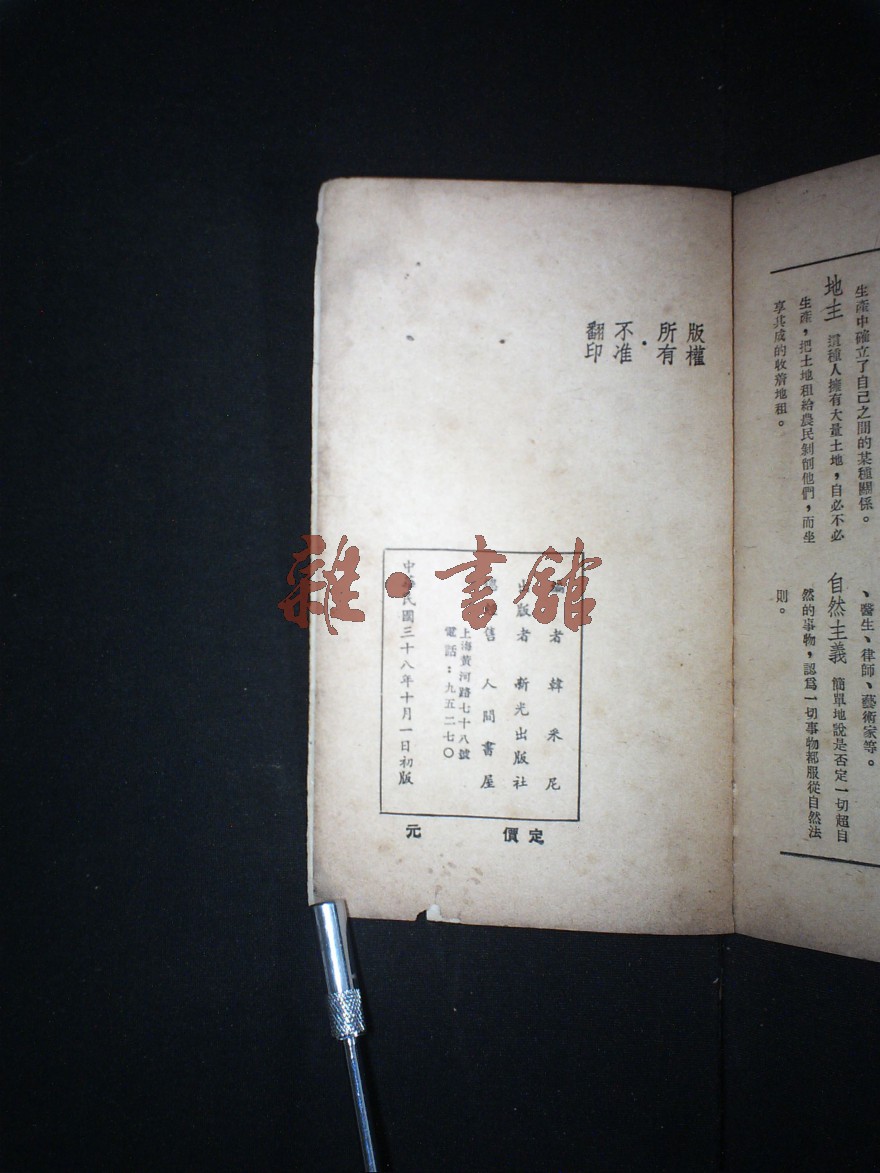 生產中確立了自己之間的某種關係。
地主 這種人擁有大量土地，自必不必
生產，把土地租給農民剝削他們，而坐
享其成的收着地租。
、醫生、律師、藝術家等。
自然主義 簡單地說是否定一切超自
然的事物，認爲一切事物都服從自然法
則。
版權
所有
·
不准
翻印
編者 韓釆尼
出版者 新光出版社
總經售 人間書屋
上海黃河路七十八號
電話：九五二七〇
中華民國三十八年十月一日初版
定價 元
雜·書館